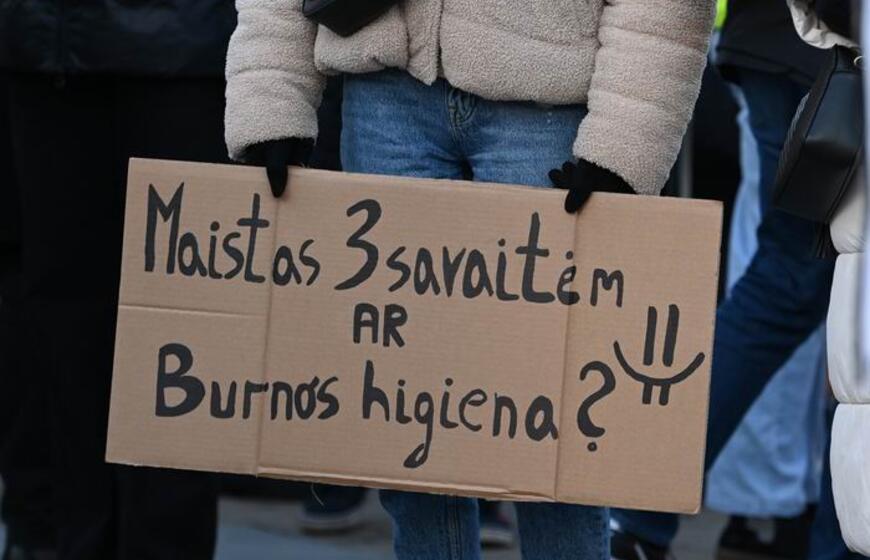 Maistas 3 savaitėm
AR
Burnos higiena?